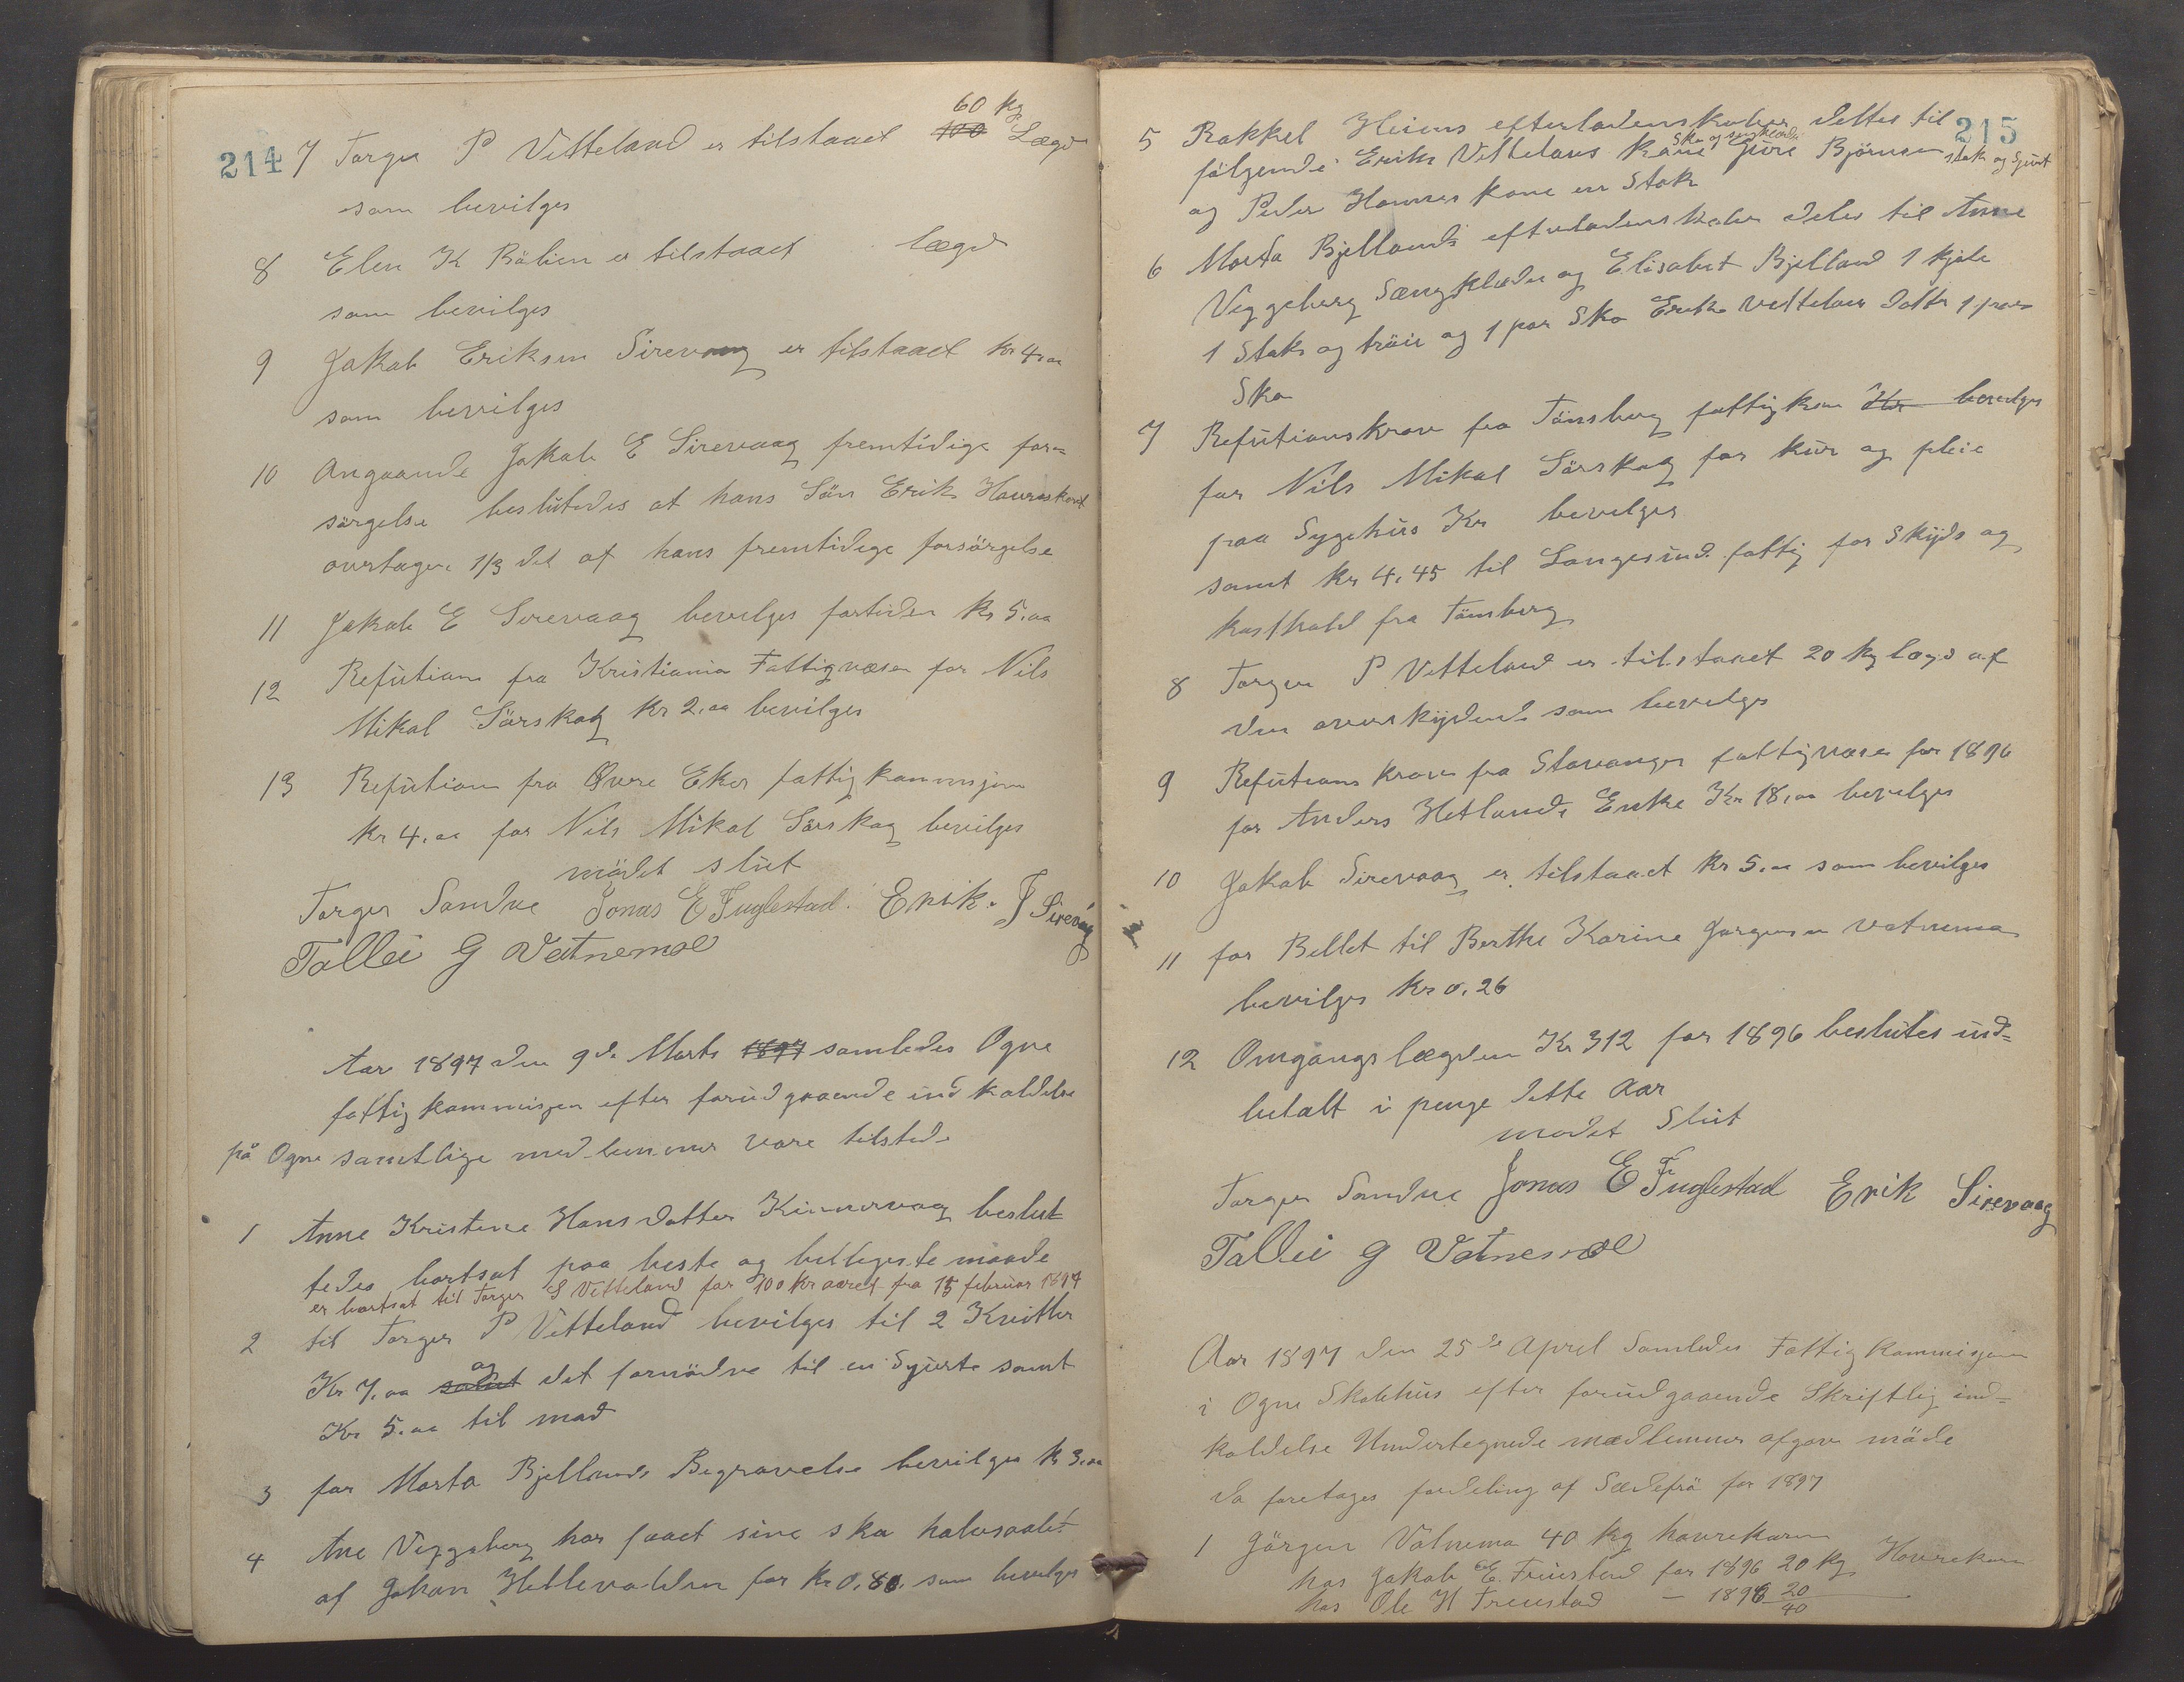 214
7 Torger P Vetteland er tilstaaet 100 60 kg Lægd
som bevilges
8 Elen K Raalien er tilstaaet lægd
som bevilges
9 Jakob Eriksen Sirevaag er tilstaaet Kr 4,00
som bevilges
10 Angaaende Jakob E Sirevaag fremtidige for=
sørgelse beslutedes at hans Søn Erik
overtager 1/3 del af hans fremtidege forsörgelse
11 Jakob E Sirevaag bevelges fortiden Kr 5,00
12 Refution fra Kristiania Fattigvæsen for Nils
Mikal Sörskog Kr 2,00 bevilges
13 Refution fra Øvre Eker fattigkommisjon
Kr 4,00 for Nils Mikal Sörskog bevilges
mödet slut
Torger Sandve Jonas E Fuglestad. Erik. J Sirevåg
Tollei G Vatnemoe
Aar 1897 den 9de Marts 1897 samledes Ogne
fattigkommisjon efter forudgaaende indkaldelse
på Ogne samtlige medlemmer vare tilstede
1 Anne Kristine Hansdatter Kinnervaag beslut
tedes bortsat paa beste og billigeste maade
er bortsat til Torger S Vetteland for 100 Kr aaret fra 15 februar 1897
2 til Torger P Vetteland bevilges til 2 Knitler
Kr 7,00 samt og det fornödne til en Sjurte samt
Kr 5,00 til mad
3 for Marta Bjellands Begravelse bevilges Kr 3,00
4 Ane Veggeberg har faaet sine sko halvsaalet
af Johan Hetlevolden for Kr 0,80 som bevilges
215
5 Rakkel Heiens efterladenskaber deltes til
fölgende Erik Vettelans Kone Sko og Gure Björnsen stak og Sjurt
og Peder Hommes kone en Stak
6 Marta Bjellands efterladenskaber deles til Anne
Veggeberg Sængklæder og Elisabet Bjelland 1 kjole
1 Stak og tröie og 1 par Sko Erik Vettelans datter 1 par
Sko
7 Refutionskrav fra Tönsberg fattigkom Kr bevelges
for Nils Mikal Sörskog for kur og pleie
paa Sygehus Kr bevelges
samt Kr 4,45 til Langesund fattig for Skyds og
kosthold fra Tönsberg
8 Torger P Vetteland er tilstaaet 20 kg lægd af
den overskydende som bevelges
9 Refutions Krav fra Stavanger fattigvæsen for 1896
for Anders Hetlands Enke Kr 18,00 bevelges
10 Jakob Sirevaag er tilstaaet Kr 5,00 som bevilges
11 for Bellet til Berthe Karine Jorgensen Vatnemo
bevilges Kr 0,26
12 Omgangslægden Kr 312 for 1896 beslutes ind=
betalt i penge dette Aar
modet Slut
Torger Sandve Jonas E Fuglestad Erik Sirevaag
Tollei G Vatnemoe
Aar 1897 den 25de Aprel Samledes Fattigkommisjonen
i Ogne Skolehus efter forudgaaende Skriftlig ind=
kaldelse Undertegnede medlemmer afgav möde
da foretages fordeling af Sædefrö for 1897
1 Jörgen Vatnemo 40 kg havrekorn
hos Jakob E. Treustad for 1896 20 kg Havrekorn
hos Ole H Treustad — 1896 20
40